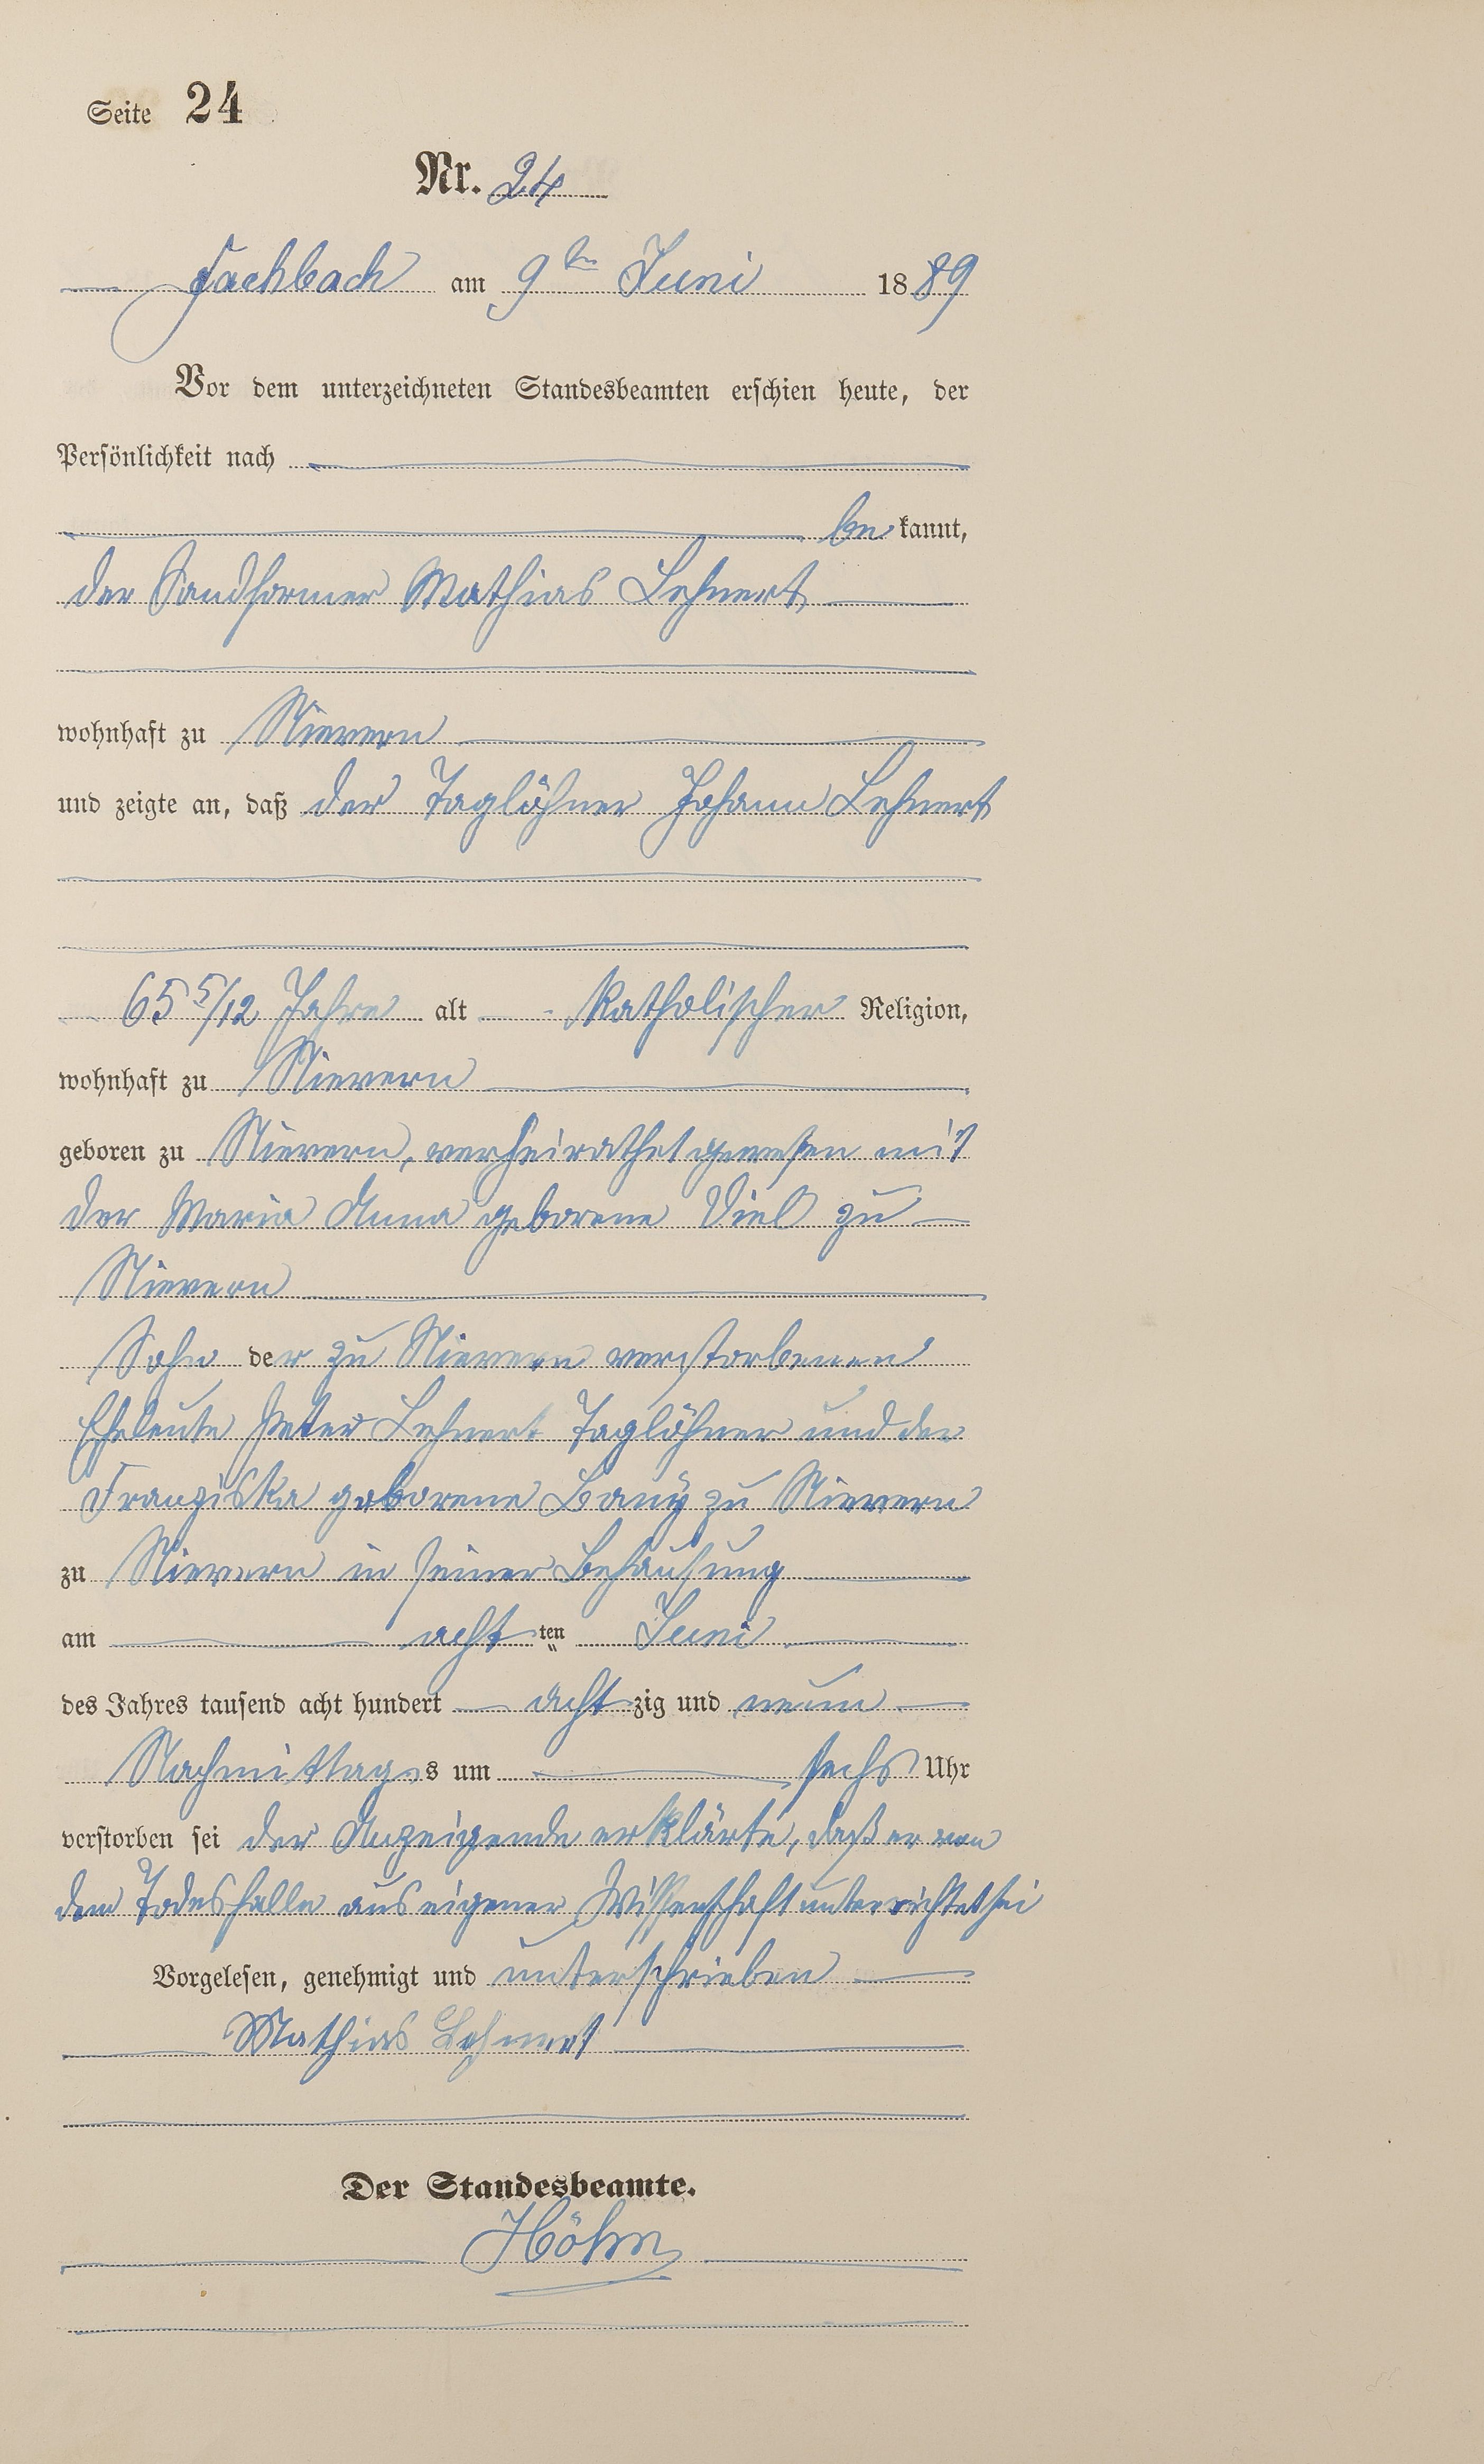 Seite 24
Nr. 24
Fachbach am 9ten Juni 1889
Vor dem unterzeichneten Standesbeamten erschien heute, der
Persönlichkeit nach
bekannt,
der Sandformer Mathias Lehnert
wohnhaft zu Nievern
und zeigte an, daß der Taglöhner Johann Lehnert
65 5/12 Jahre alt katholischer Religion,
wohnhaft zu Nievern
geboren zu Nievern, verheirathet gewesen mit
der Maria Anna geborene Viel zu
Nievern
Sohn der zu Nievern verstorbenen
Eheleute Peter Lehnert Taglöhner und der
Franziska geborene zu Nievern
zu Nievern in seiner Behausung
am achtten Juni
des Jahres tausend acht hundert achtzig und neun
Nachmittags um sechs Uhr
verstorben sei der Anzeigende erklärte, daß er von
dem Todesfalle aus eigener Wissenschaft unterrichtet sei
Vorgelesen, genehmigt und unterschrieben
Mathias Lehnert
Der Standesbeamte.
Höhn